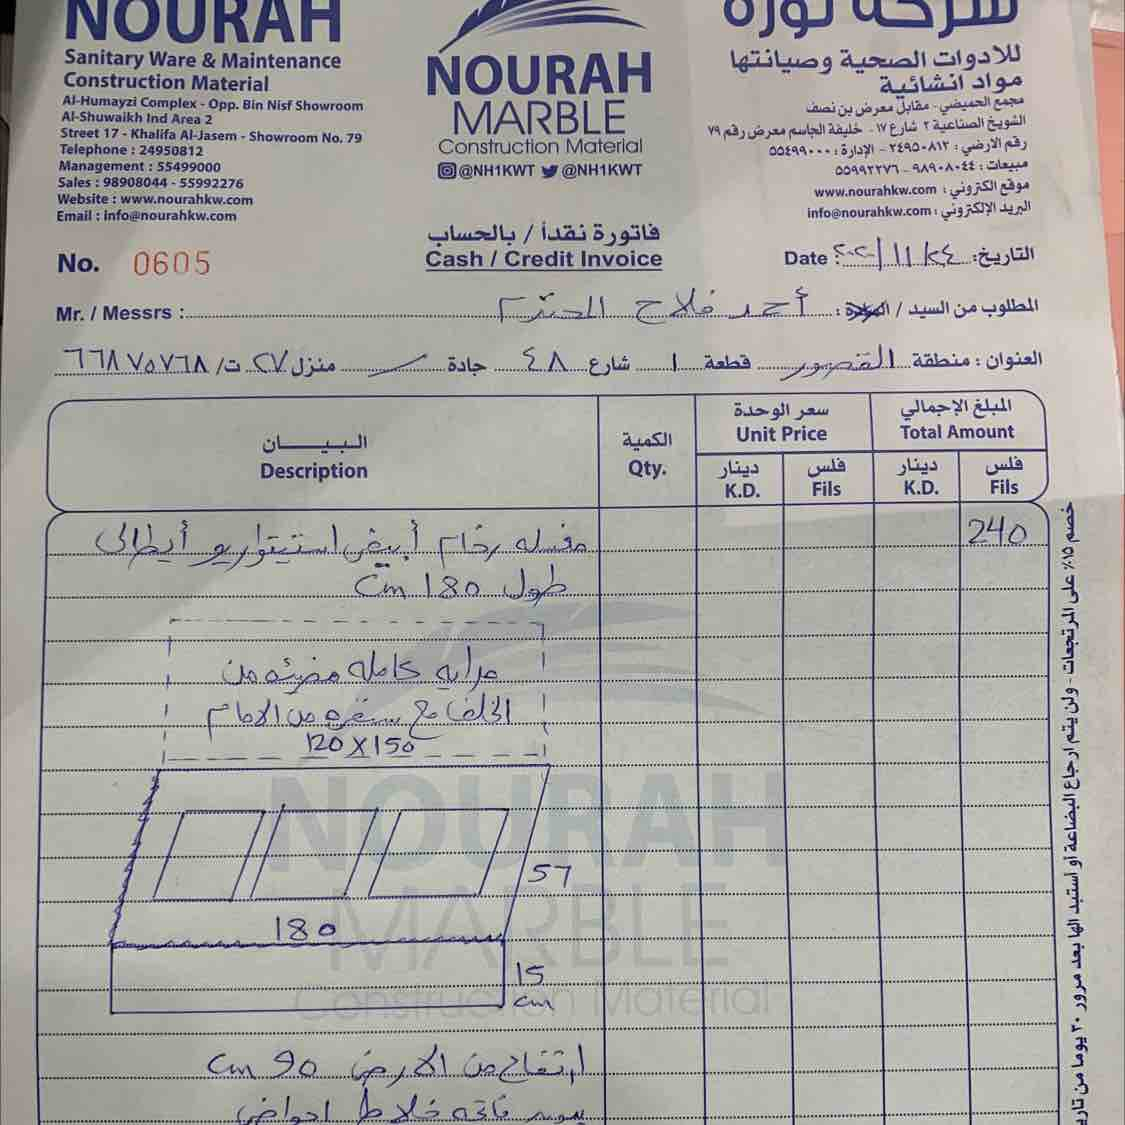 NOURAH
Sanitary Ware & Maintenance
Construction Material
Al-Humayzi Complex - Opp. Bin Nisf Showroom
Al-Shuwaikh Ind Area 2
Street 17 - Khalifa Al-Jasem - Showroom No. 79
Telephone : 24950812
Management : 55499000
Sales : 98908044 - 55992276
Website : www.nourahkw.com
Email : info@nourahkw.com
NOURAH
MARBLE
Construction Material
@NH1KWT @NH1KWT
شركة نورة
للادوات الصحية وصيانتها
مواد انشائية
مجمع الحميضي - مقابل معرض بن نصف
الشويخ الصناعية ٢ شارع ١٧ - خليفة الجاسم معرض رقم ٧٩
رقم الارضي : ٢٤٩٥٠٨١٢ - الإدارة : ٥٥٤٩٩٠٠٠
مبيعات : ٩٨٩٠٨٠٤٤ - ٥٥٩٩٢٢٧٦
موقع الكتروني : www.nourahkw.com
البريد الإلكتروني : info@nourahkw.com
فاتورة نقدأ / بالحساب
Cash / Credit Invoice
No. 0605
Date : ٢٤/١١/٢٠٢٠ التاريخ:
Mr. / Messrs : أحمد فلاح المحترم المطلوب من السيد /
العنوان : منطقة القصور قطعة ١ شارع ٤٨ جادة منزل ٢٧ ت/ ٦٦٨٧٥٧٦٨
البـيـــان
Description
الكمية
Qty.
سعر الوحدة
Unit Price
المبلغ الإجمالي
Total Amount
دينار
K.D.
فلس
Fils
دينار
K.D.
فلس
Fils
مغسله رخام أبيض استيتواريو أيطالي 240
طول 180 cm
مرايه كامله مضيئه من
الخلف مع سنفره من الامام
120 x 150
57
180
15
cm
ارتفاع من الارض 90 cm
فتحه خلاط احواض
NOURAH
MARBLE
Construction Material
خصم ١٥٪ على المرتجعات - ولن يتم ارجاع البضاعة أو استبدالها بعد مرور ٣٠ يوما من تاريخ